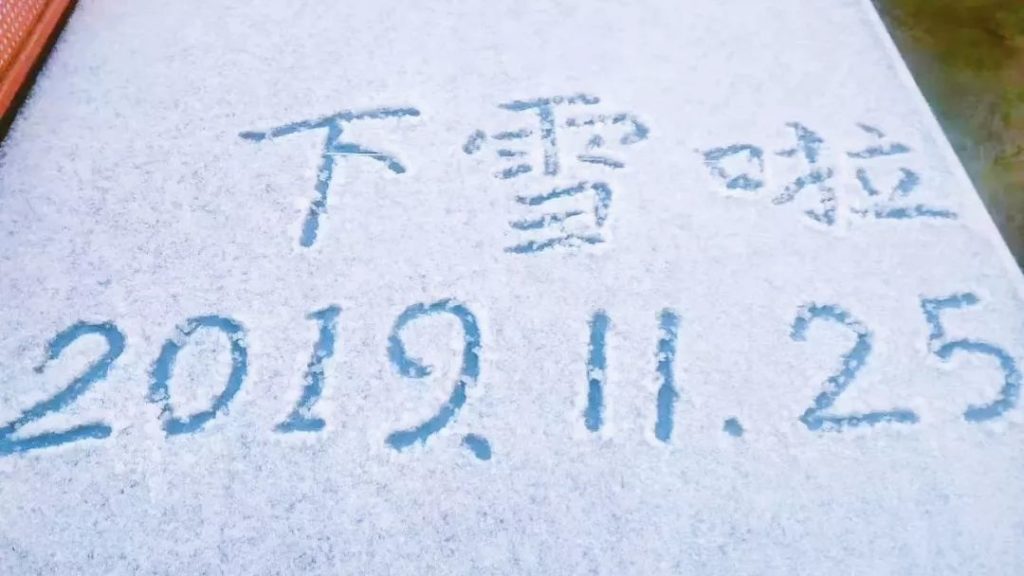 下雪啦
2019.11.25